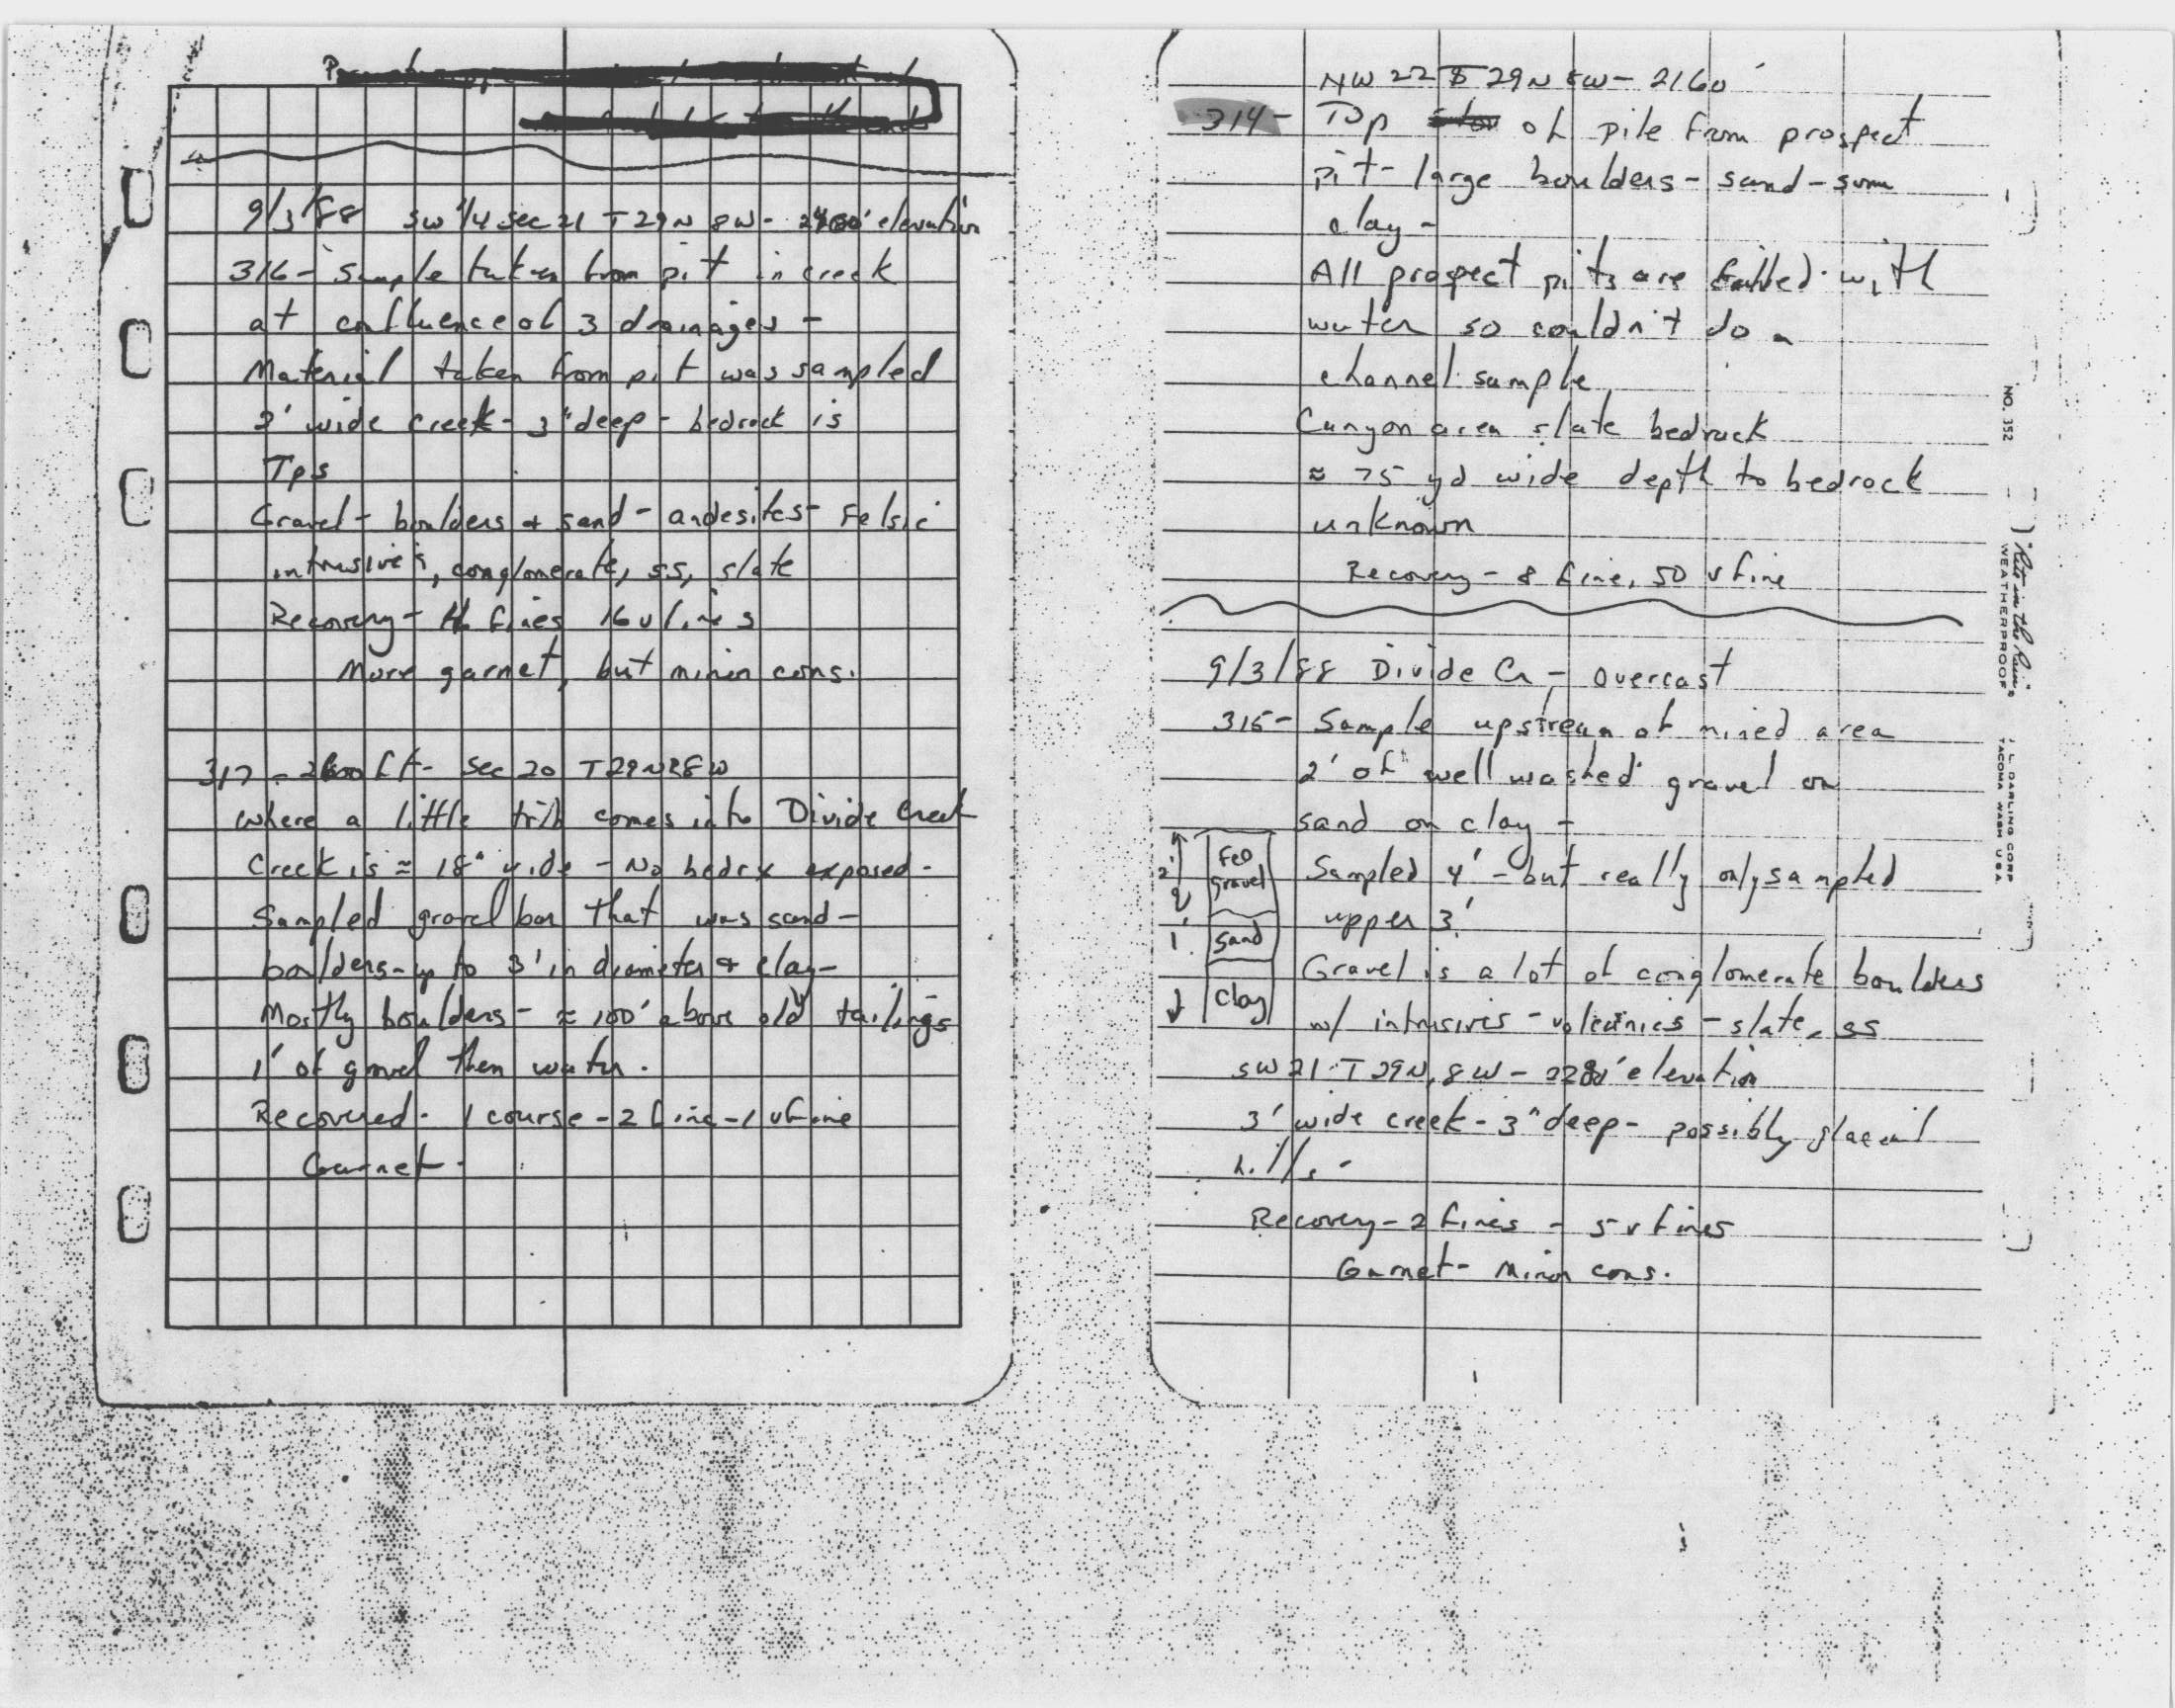 9/3/88 SW 1/4 Sec 21 T29N 8W - elevation
316 - Sample taken from pit in creek
at confluence of 3 drainages -
Material taken from pit was sampled
2' wide creek - 3" deep - bedrock is
Tps
Gravel - boulders & sand - andesites - Felsic
intrusive's, conglomerate, ss, slate
Recovery - fines 16 v fines
More garnet, but minor cons.
317 - ft - Sec 20 T29N R8W
where a little trib comes into Divide Creek
Creek is ≈ 18" wide - No bedrx exposed -
Sampled gravel bar that was sand -
boulders - up to 3' in diameter & clay -
Mostly boulders - ≈ 100' above old tailings
1' of gravel then water.
Recovered - 1 course - 2 fine - 1 v fine
Garnet -
NW 22 T 29N 8W - 2160'
314 - Top of pile from prospect
pit - large boulders - sand - some
clay -
All prospect pits are with
water so couldn't do a
channel sample
Canyon area slate bedrock
≈ 75 yd wide depth to bedrock
unknown
Recovery - 8 fine, 50 v fine
9/3/88 Divide Cr - overcast
315 - Sample upstream of mined area
2' of well washed gravel on
sand on clay -
Sampled 4' - but really only sampled
upper 3'
Gravel is a lot of conglomerate boulders
w/ intrusives - volcanics - slate, ss
SW 21 T 29N, 8W - 2280' elevation
3' wide creek - 3" deep - possibly glacial
hills -
Recovery - 2 fines - 5 v fines
Garnet - Minor cons.
2'
FeO
gravel
1'
sand
clay
NO. 352
"Rite in the Rain"
WEATHERPROOF
J. L. DARLING CORP
TACOMA WASH USA